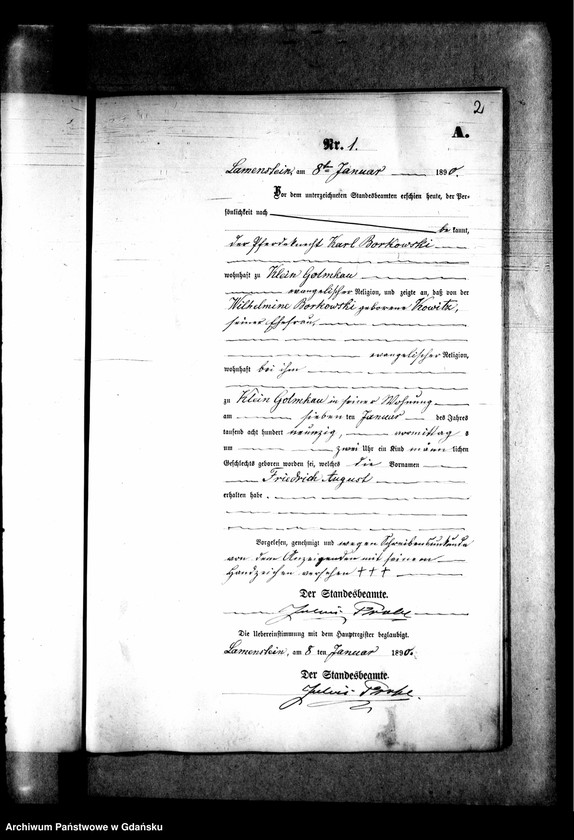 2
A.
Nr. 1.
Lamenstein, am 8ten Januar 1890.
Vor dem unterzeichneten Standesbeamten erschien heute, der Per-
sönlichkeit nach
bekannt,
der Pferdeknecht Karl Borkowski
wohnhaft zu Klein Golmkau
evangelischer Religion, und zeigte an, daß von der
Wilhelmine Borkowski geborene Kowitz,
seiner Ehefrau,
evangelischer Religion,
wohnhaft bei ihm
zu Klein Golmkau in seiner Wohnung
am sieben ten Januar des Jahres
tausend acht hundert neunzig, vormittags
um zwei Uhr ein Kind männlichen
Geschlechts geboren worden sei, welches die Vornamen
Friedrich August
erhalten habe.
Vorgelesen, genehmigt und wegen Schreibensunkunde
von dem Anzeigenden mit seinem
Handzeichen versehen +++
Der Standesbeamte.
Julius
Die Uebereinstimmung mit dem Hauptregister beglaubigt.
Lamenstein, am 8 ten Januar 1890.
Der Standesbeamte.
Julius
Archiwum Państwowe w Gdańsku